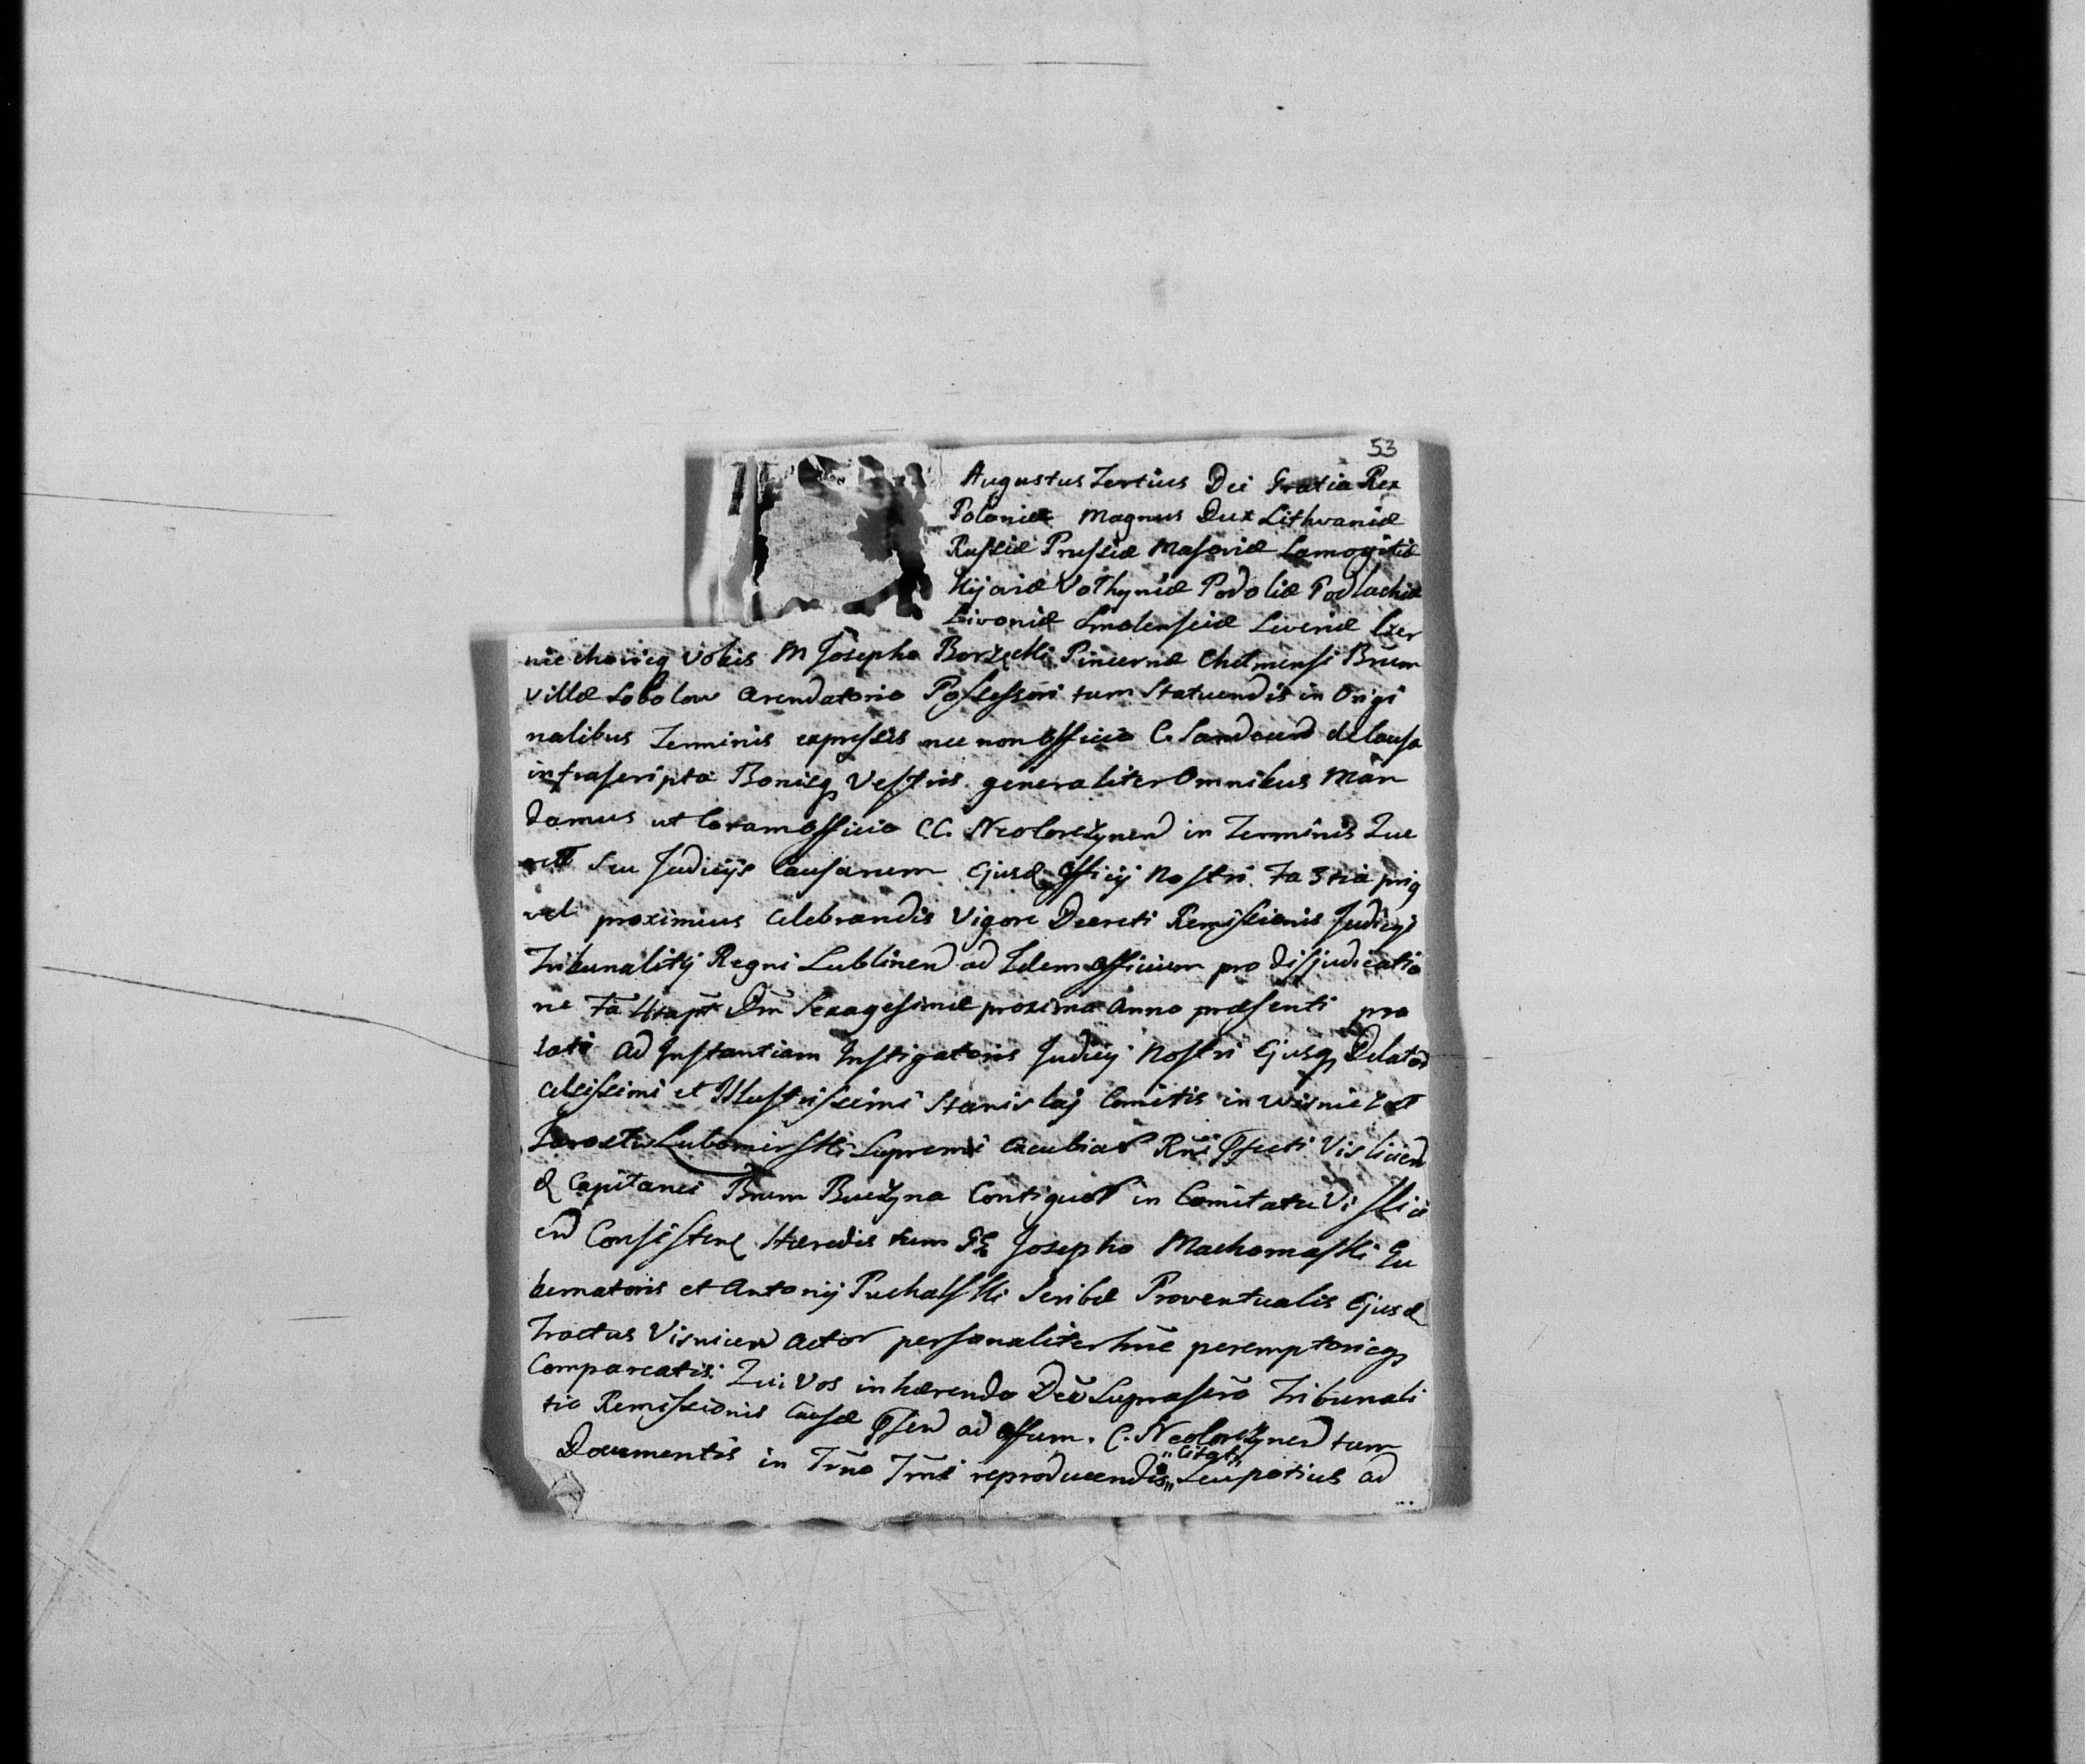 53
Augustus Tertius Dei Gratia Rex
Poloniæ Magnus Dux Lithvaniæ
Russiæ Prussiæ Masoviæ Samogitiæ
Kijoviæ Volhyniæ Podoliæ Podlachiæ
Livoniæ Smolensciæ Seveniæ Czer
niechoviæq Vobis M Josepho Borzęcki Pincernæ Chelmensi Bnum
Villæ Sobolow arendatorio Possessori tum Statuendis in Origi
nalibus Terminis expressis nec non Officio C. Sandecen de Causa
infrascripta Bonisq Vestris generaliter Omnibus Man
damus ut Coram Officio CC. Neolorczynen in Terminis Que
rell Seu Judicijs Causarum Ejusd Officij Nostri Fa 3tia
vel proximius celebrandis Vigore Decreti Remissionis Judicij
Tribunalitij Regni Lublinen ad Idem Officium pro disjudicatio
ne Fa Dm Sexagesimæ proxima anno præsenti pro
lati ad Instantiam Instigatoris Judicij Nostri Ejusq Delator
Celsissimi et Illustrissimi Stanislaj Comitis in Wisnicz et
Jaroslaw Lubomirski Supremi Excubiar Rni Pfecti Vislicien
& Capitanei Bnum Buczyna Contiguor in Comitatu Vislici
en Consisten Hæredis tum GG Josepho Machomaski Gu
bernatoris et Antonij Puchalski Scribæ Proventualis Ejusd
Tractus Visnicen Actor personaliter hue peremptorieq
Compareatis: Qui Vos inhærendo Deo Suprascro Tribunali
tio Remissionis Causæ Psen ad Offum. C. Neolorczynen tum
Documentis in Trno Trni reproducendis „Citat„ Seu potius ad